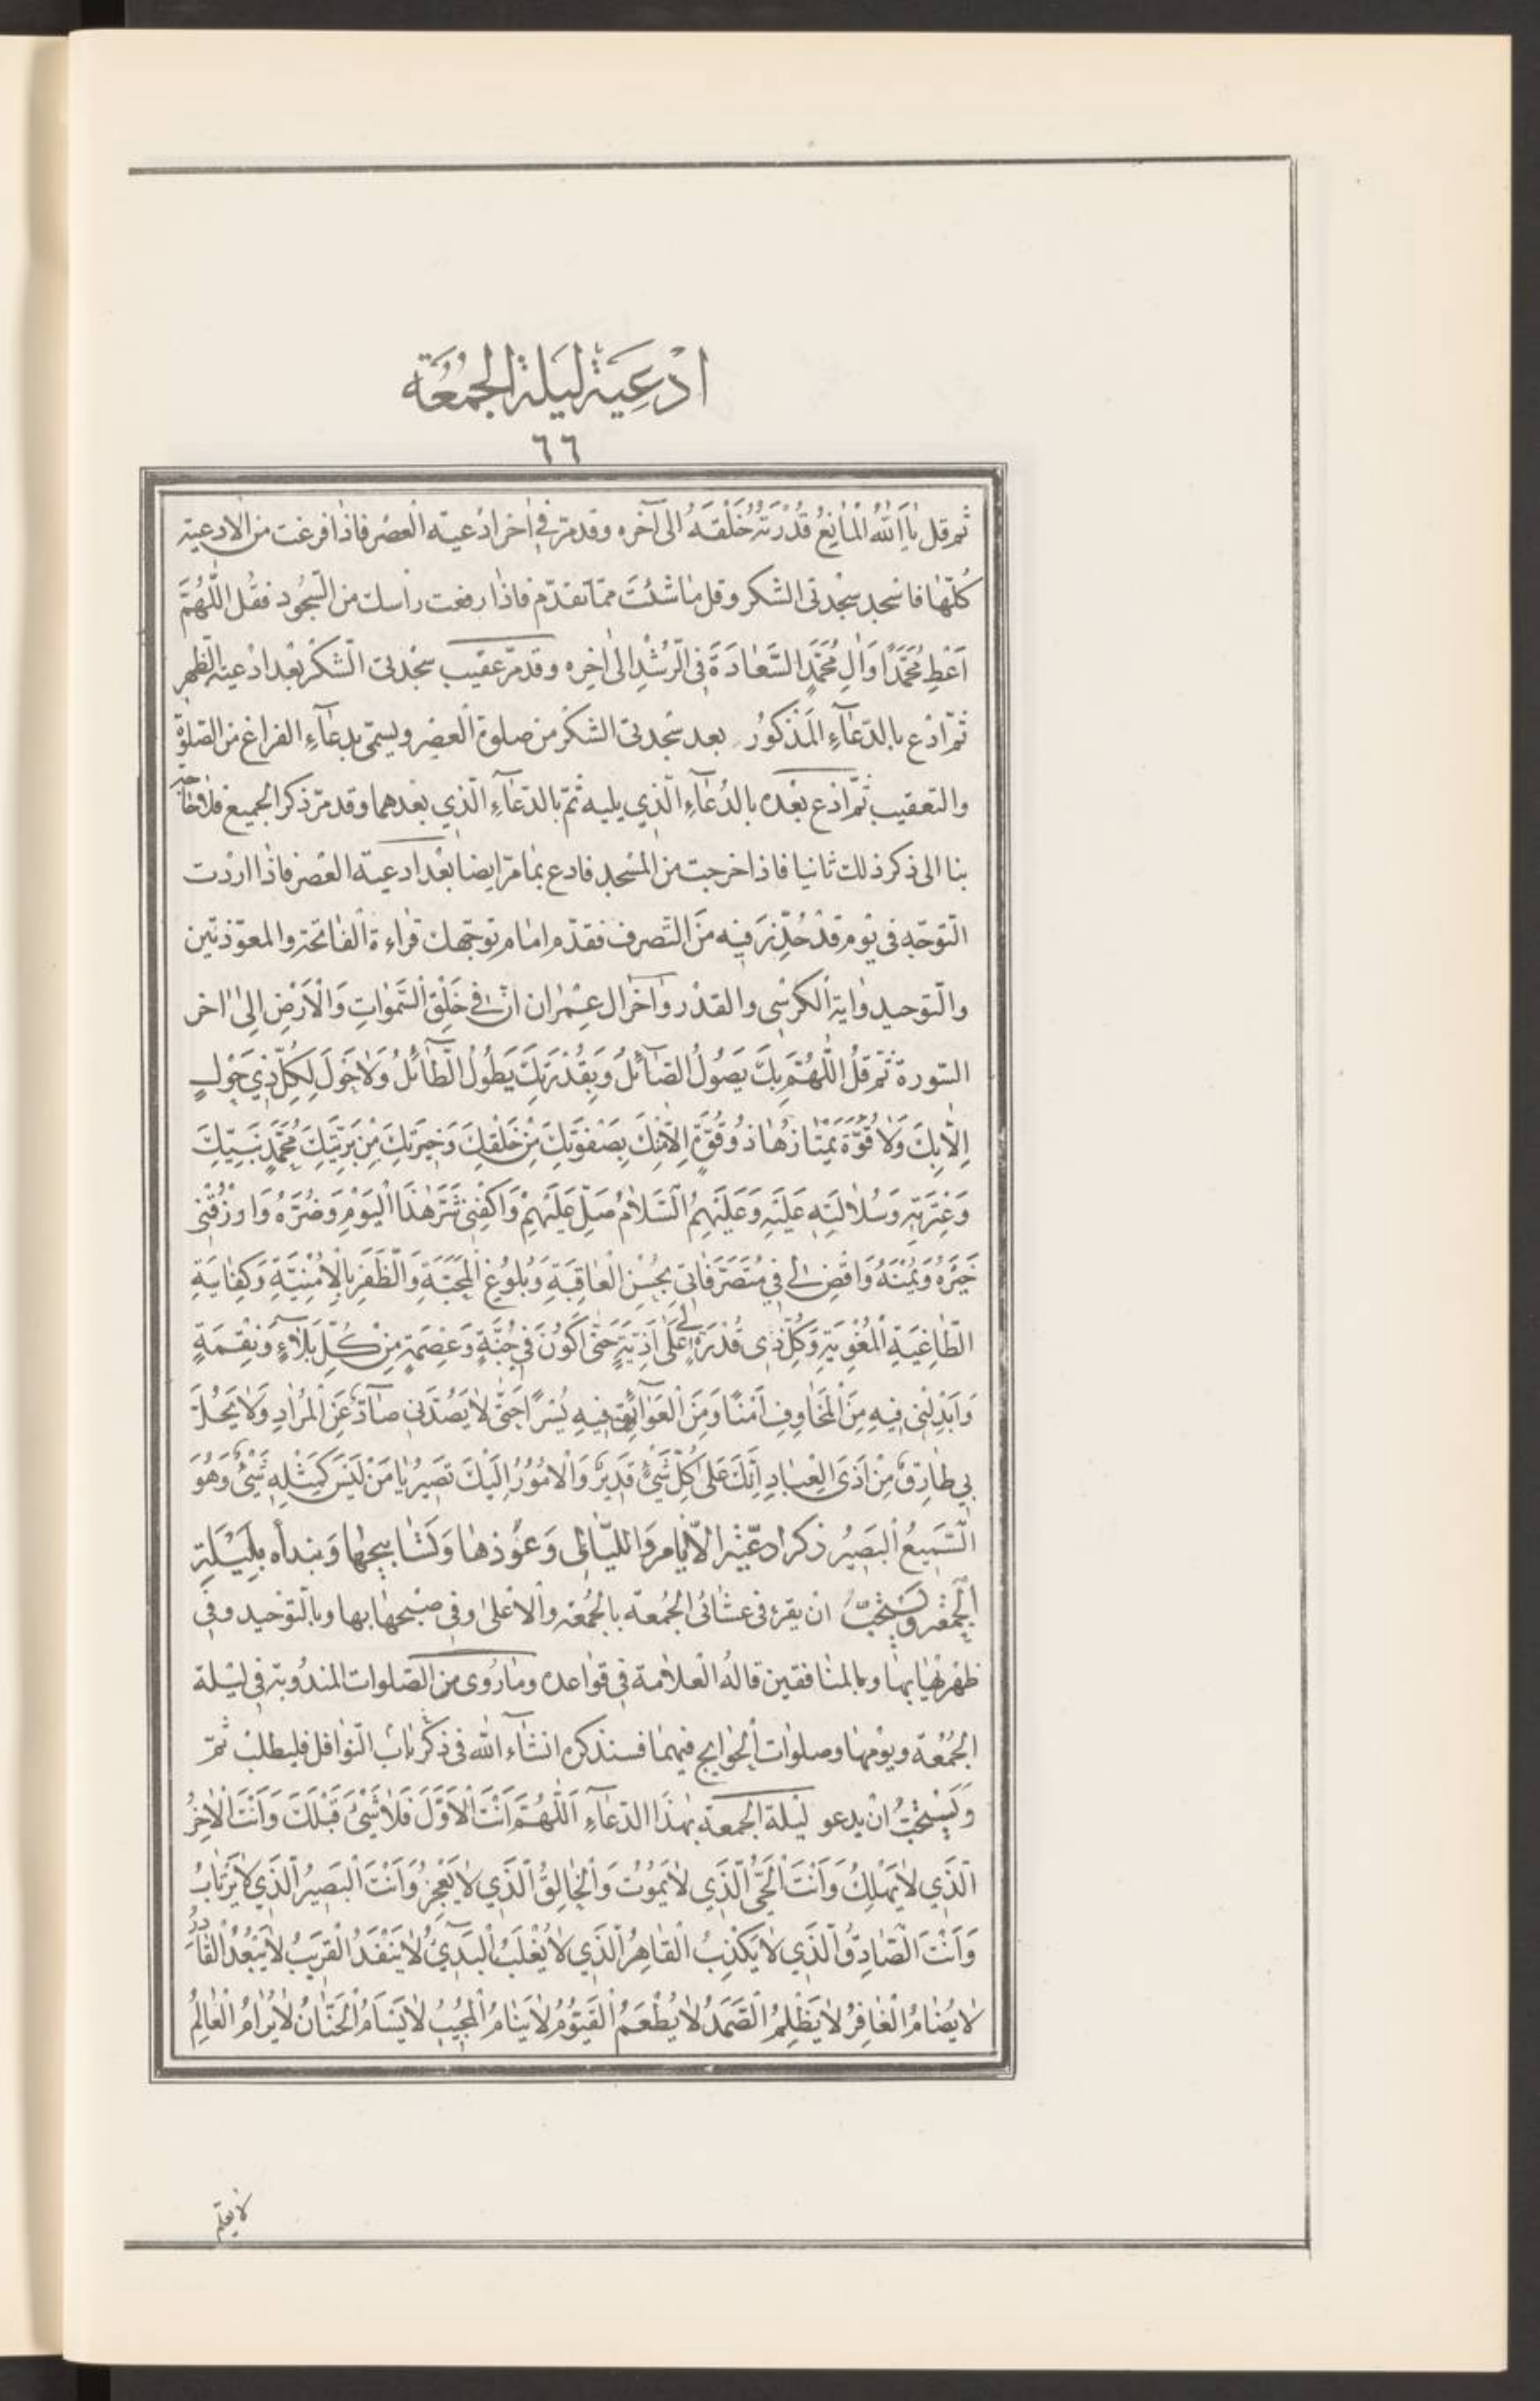 ادْعِيَةُ لَيْلَةِ الْجُمُعَة
٦٦
ثم قل يا اَللّٰهُ الْمٰانِعُ قُدْرَتُهُ خَلْقَهُ الى آخره وقد مرّ في اٰخر ادْعيته العصْر فاذا فرغت من الادعية
كُلّها فاسْجد سجْدتى الشكر وقل ماشئت ممّا تقدّم فاذا رفعت رأسك من السّجُود فقُل اَللّٰهُمَّ
اَعْطِ مُحَمَّدًا وَاٰلِ مُحَمَّدٍ السَّعٰادَةَ فِى الرُّشْدِ الىٰ اٰخِرِه وقد مرّ عقيب سجْدتى الشكر بعْد ادْعية الظهر
ثمّ ادْع بالدّعآءِ المَذْكُورُ بعد سْجدتى الشكْر من صلوة الْعصْر ويسمّى بدعآءِ الفراغ من الصّلوٰة
والتعقيب ثمّ ادْع بعْده بالدُعآءِ الّذي يليه ثمّ بالدّعآءِ الّذي بعْدهما وقد مرّ ذكر الجميع فلا حٰاجة
بنا الى ذكر ذلك ثانيا فاذا خرجت من المسْجد فادع بمٰا مرّ ايضا بعْد ادعية العصْر فاذا اردْت
التّوجّه فى يوْم قدْ حُذّر فيه من التّصرف فقدّم امام توجّهك قراءة الْفاتحة والمعوّذتين
والتّوحيد واٰية الكرْسى والقدْر وآخر اٰل عِمْران انّ في خَلْقِ السَّمٰوٰاتِ وَالْاَرْضِ اِلىٰ اٰخر
السّورة ثمّ قلْ اَللّٰهُمَّ بِكَ يَصُولُ الصّٰآئِلُ وَبِقُدْرَتِكَ يَطُولُ الطّٰآئِلُ وَلٰا حَوْلَ لِكُلِّ ذِي حَوْلٍ
اِلّٰا بِكَ وَلٰا قُوَّةَ يَمْتٰازُهٰا ذُو قُوَّةٍ اِلّٰا مِنْكَ بِصَفْوَتِكَ مِنْ خَلْقِكَ وَخِيَرَتِكَ مِنْ بَرِيَّتِكَ مُحَمَّدٍ نَبِيِّكَ
وَعِتْرَتِهِ وَسُلٰالَتِهِ عَلَيْهِ وَعَلَيْهِمُ السَّلٰامُ صَلِّ عَلَيْهِمْ وَاكْفِنِى شَرَّ هٰذَا الْيَوْمِ وَضُرَّهُ وَارْزُقْنِى
خَيْرَهُ وَيُمْنَهُ وَاقْضِ لِي فِي مُتَصَرَّفٰاتِى بِحُسْنِ الْعٰاقِبَةِ وَبُلُوغِ الْمَحَبَّةِ وَالظَّفَرِ بِالْاُمْنِيَّةِ وَكِفٰايَةِ
الطّٰاغِيَةِ الْمُغْوِيَةِ وَكُلِّ ذِى قُدْرَةٍ لِي عَلىٰ اَذِيَّةٍ حَتّٰى اَكُونَ فِي جُنَّةٍ وَعِصْمَةٍ مِنْ كُلِّ بَلٰآءٍ وَنِقْمَةٍ
وَاَبْدِلْنِى فِيهِ مِنَ الْمَخٰاوِفِ اَمْنًا وَمِنَ الْعَوٰآئِقِ فِيهِ يُسْرًا حَتّٰى لٰا يَصُدَّنِى صٰآدٌّ عَنِ الْمُرٰادِ وَلٰا يَحُلَّ
بِي طٰارِقٌ مِنْ اَذَى الْعِبٰادِ اِنَّكَ عَلىٰ كُلِّ شَيْءٍ قَدِيرٌ وَالْاُمُورُ اِلَيْكَ تَصِيرُ يٰا مَنْ لَيْسَ كَمِثْلِهِ شَيْءٌ وَهُوَ
السَّمِيعُ الْبَصِيرُ ذكر ادعيْة الايّام وَاللّيالى وَعُوَذهٰا وَتَسٰابيحهٰا وَنبدأه بِلَيْلَةِ
الْجُمْعَه ويُسْتَحَبّ ان يقرء فى عشائى الجُمعة بالجُمُعه والاعْلىٰ وفى صبْحهٰا بها وبالتّوْحيد وفى
ظهْريْهٰا بهٰا وبالمنٰافقين قالهُ الْعلاّمة فى قواعده ومٰا رُوى من الصّلوات المندُوبة فى ليْلة
الجُمْعة ويوْمهٰا وصلوات الْحوٰايج فيهمٰا فسنذكره انشآء اللّٰه فى ذكْر باب النّوٰافل فليطلبْ ثمّ
وَيُسْتَحَبّ انْ يدعو ليْلة الجمعة بهٰذَا الدّعآءِ اَللّٰهُمَّ اَنْتَ الْاَوَّلَ فَلٰا شَيْءَ قَبْلَكَ وَاَنْتَ الْاٰخِرُ
الَّذِي لٰا يَهْلِكُ وَاَنْتَ الْحَىُّ الَّذِي لٰا يَمُوتُ وَالْخٰالِقُ الَّذِي لٰا يَعْجِزُ وَاَنْتَ الْبَصِيرُ الَّذِي لٰا يَرْتٰابُ
وَاَنْتَ الصّٰادِقُ الَّذِي لٰا يَكْذِبُ الْقٰاهِرُ الَّذِي لٰا يُغْلَبُ الْبَدِيءُ لٰا يَنْفَدُ الْقَرِيبُ لٰا يَبْعُدُ الْقٰادِرُ
لٰا يُضٰامُ الْغٰافِرُ لٰا يَظْلِمُ الصَّمَدُ لٰا يُطْعَمُ الْقَيُّومُ لٰا يَنٰامُ الْمُجِيبُ لٰا يَسْأَمُ الْحَنّٰانُ لٰا يُرٰامُ الْعٰالِمُ
لا يعلّم